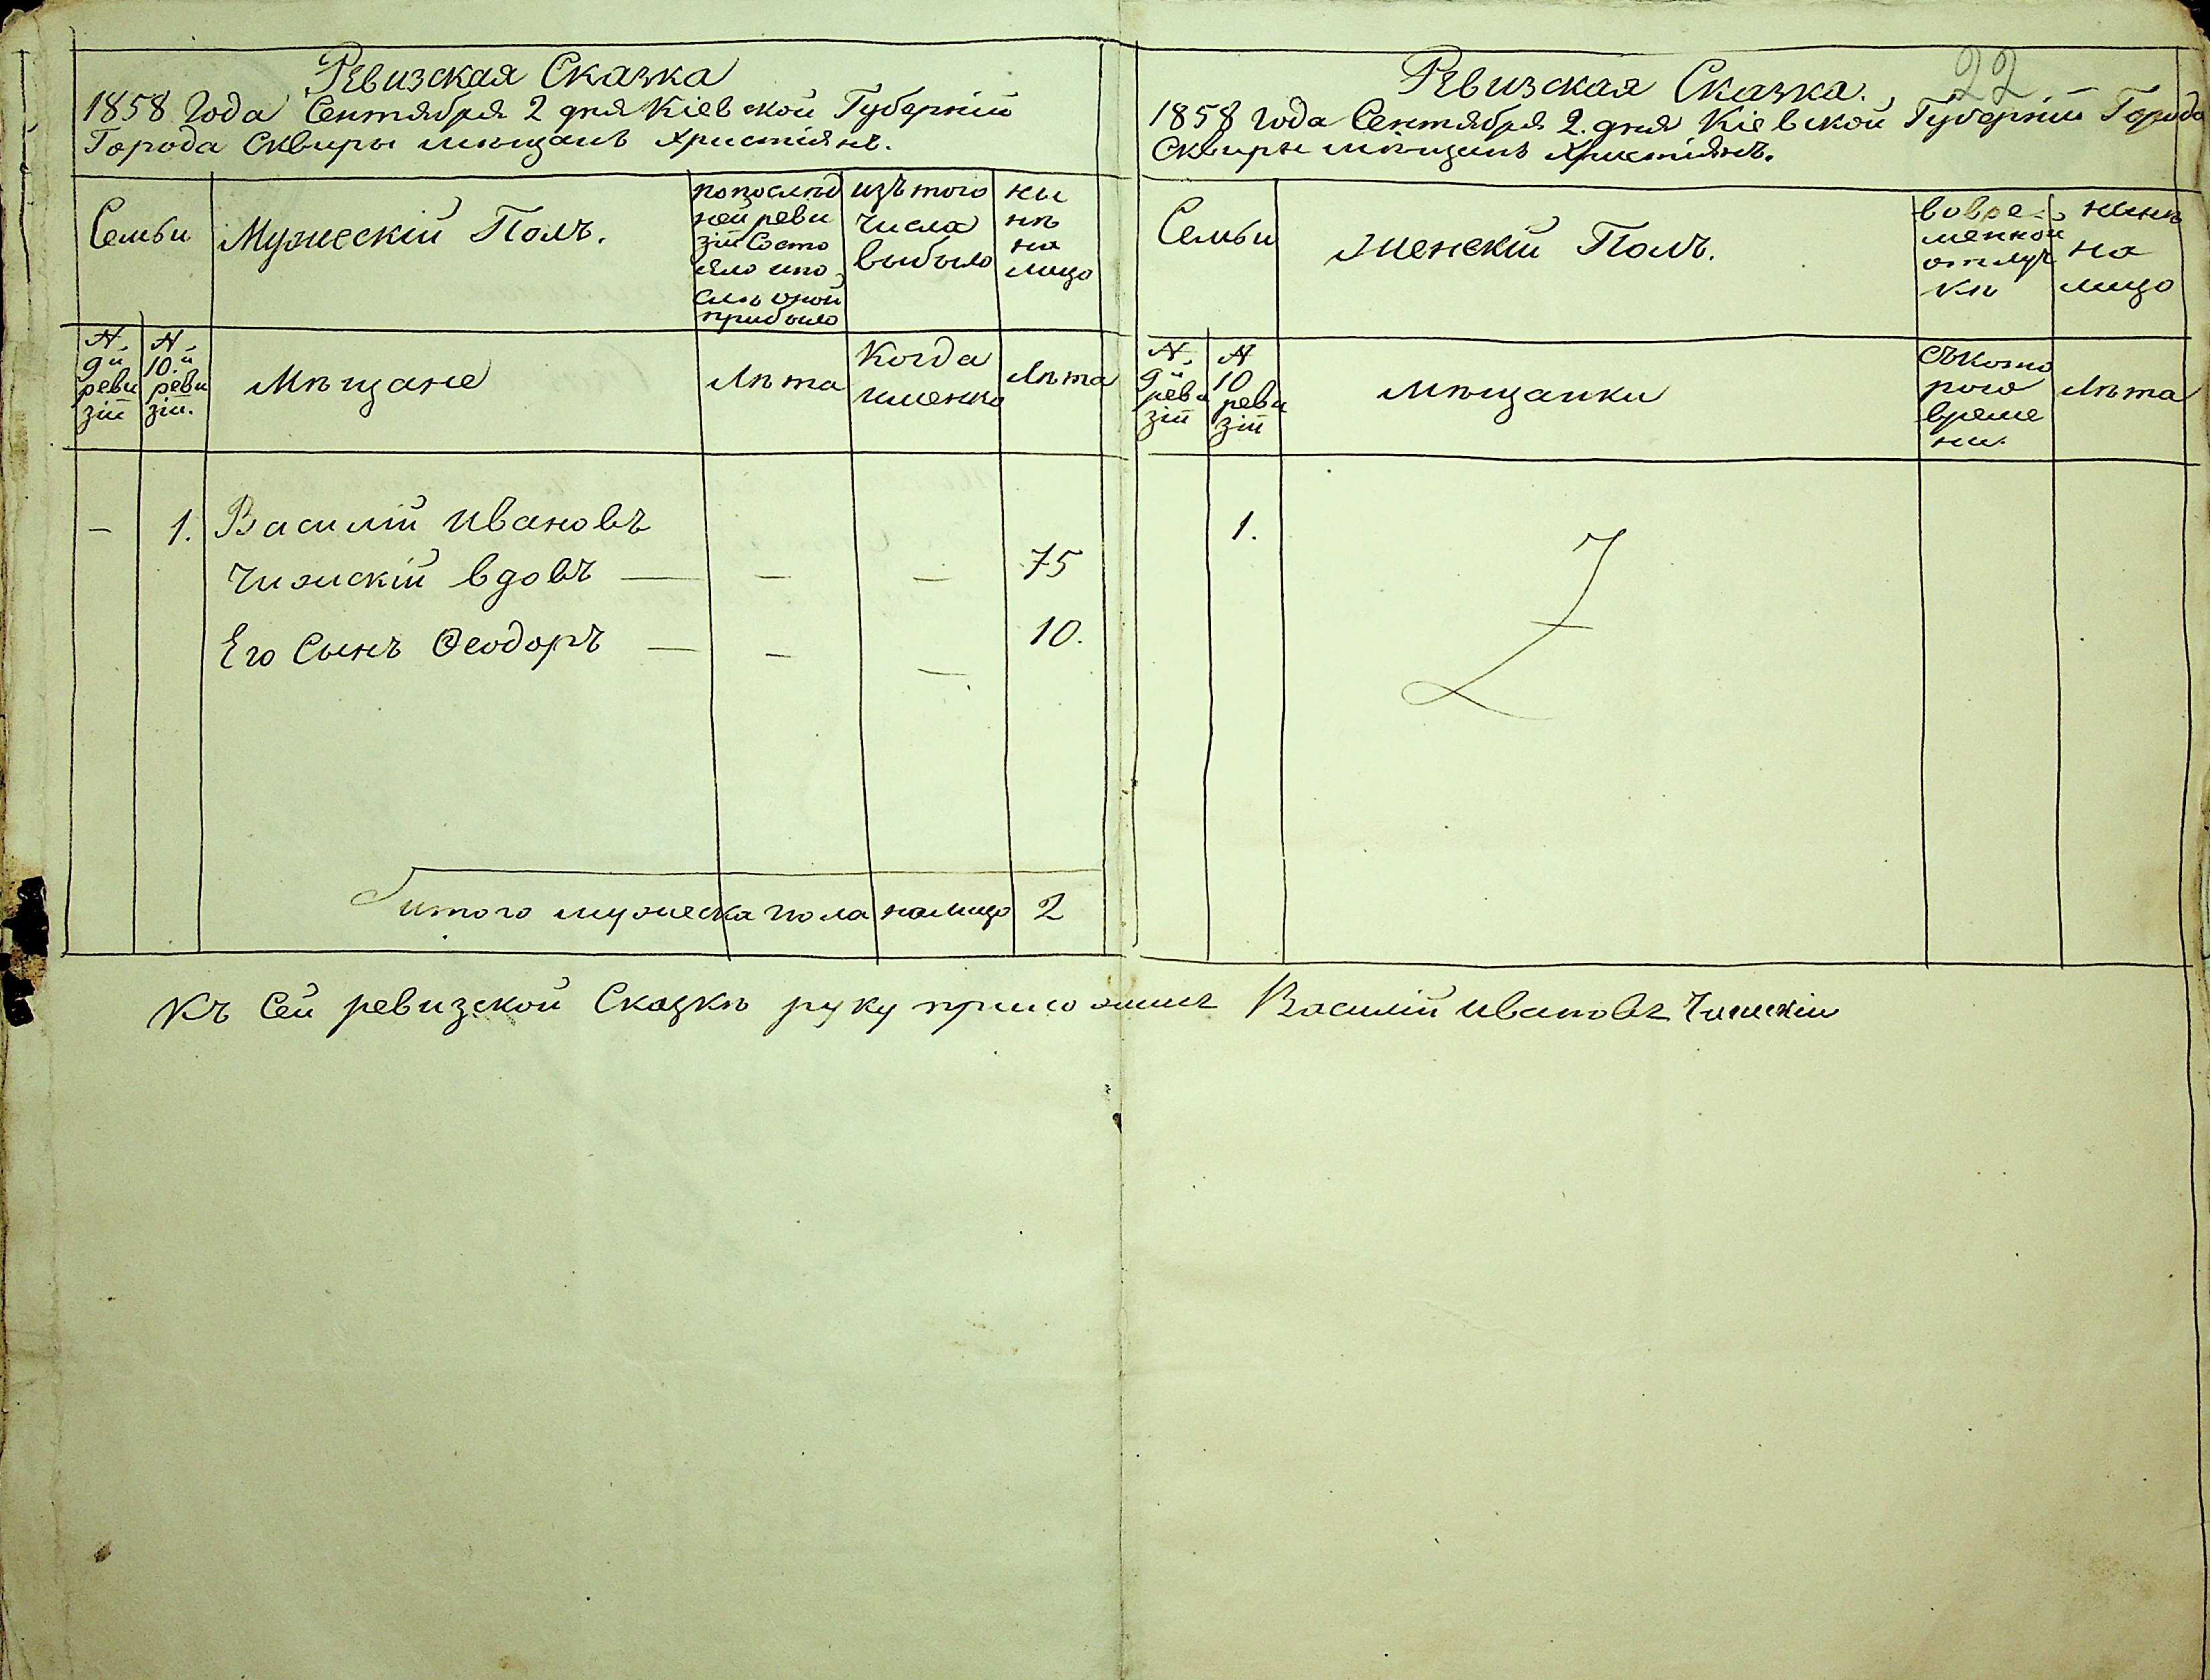 Ревизская Сказка
1858 Года Сентября 2 дня Кіевской Губерніи
Города Сквиры мѣщанъ христіянъ.
Семьи
Мужескій Полъ.
по послѣд
ней реви
зіи Состо
яло и по
слѣ оной
прибыло
изъ того
числа
выбыло
ны
нѣ
на
лицо
№
9й
реви
зіи
№
10.й
реви
зіи.
Мѣщане
Лѣта
Когда
именно
Лѣта
— 1. Василій Ивановъ
Чижскій вдовъ — — — 75
Его Сынъ Ѳеодоръ — — — 10.
Итого мужеска пола налицо 2
22
Ревизская Сказка.
1858 года Сентября 2. дня Кіевской Губерніи Города
Сквиры мѣщанъ христіянъ.
Семьи
Женскій Полъ.
во вре-
менной
отлуч
кѣ
нынѣ
на
лицо
№
9й
реви
зіи
№
10
реви
зіи
мѣщанки
съ кото
рого
време
ни.
Лѣта
1.
Къ Сей ревизской Сказкѣ руку приложилъ Василій Ивановъ Чижскій